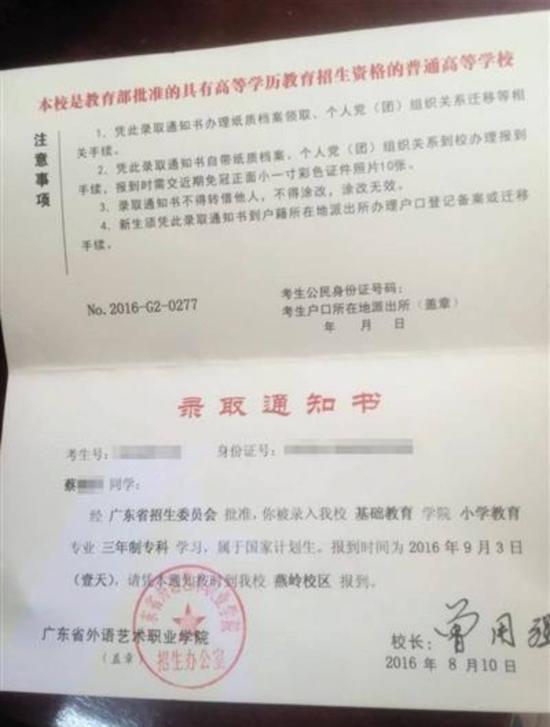 本校是教育部批准的具有高等学历教育招生资格的普通高等学校
注意事项
1、凭此录取通知书办理纸质档案领取、个人党（团）组织关系迁移等相
关手续。
2、凭此录取通知书自带纸质档案、个人党（团）组织关系到校办理报到
手续，报到时需交近期免冠正面小一寸彩色证件照片10张。
3、录取通知书不得转借他人，不得涂改，涂改无效。
4、新生须凭此录取通知书到户籍所在地派出所办理户口登记备案或迁移
手续。
No.2016-G2-0277
考生公民身份证号码：
考生户口所在地派出所（盖章）
年 月 日
录取通知书
考生号： 身份证号：
蔡 同学：
经 广东省招生委员会 批准，你被录入我校 基础教育 学院 小学教育
专业 三年制专科 学习，属于国家计划生。报到时间为 2016 年 9 月 3 日
（壹天），请凭本通知按时到我校 燕岭校区 报到。
广东省外语艺术职业学院
（盖章）
招生办公室
校长：曾用强
2016 年 8 月 10 日